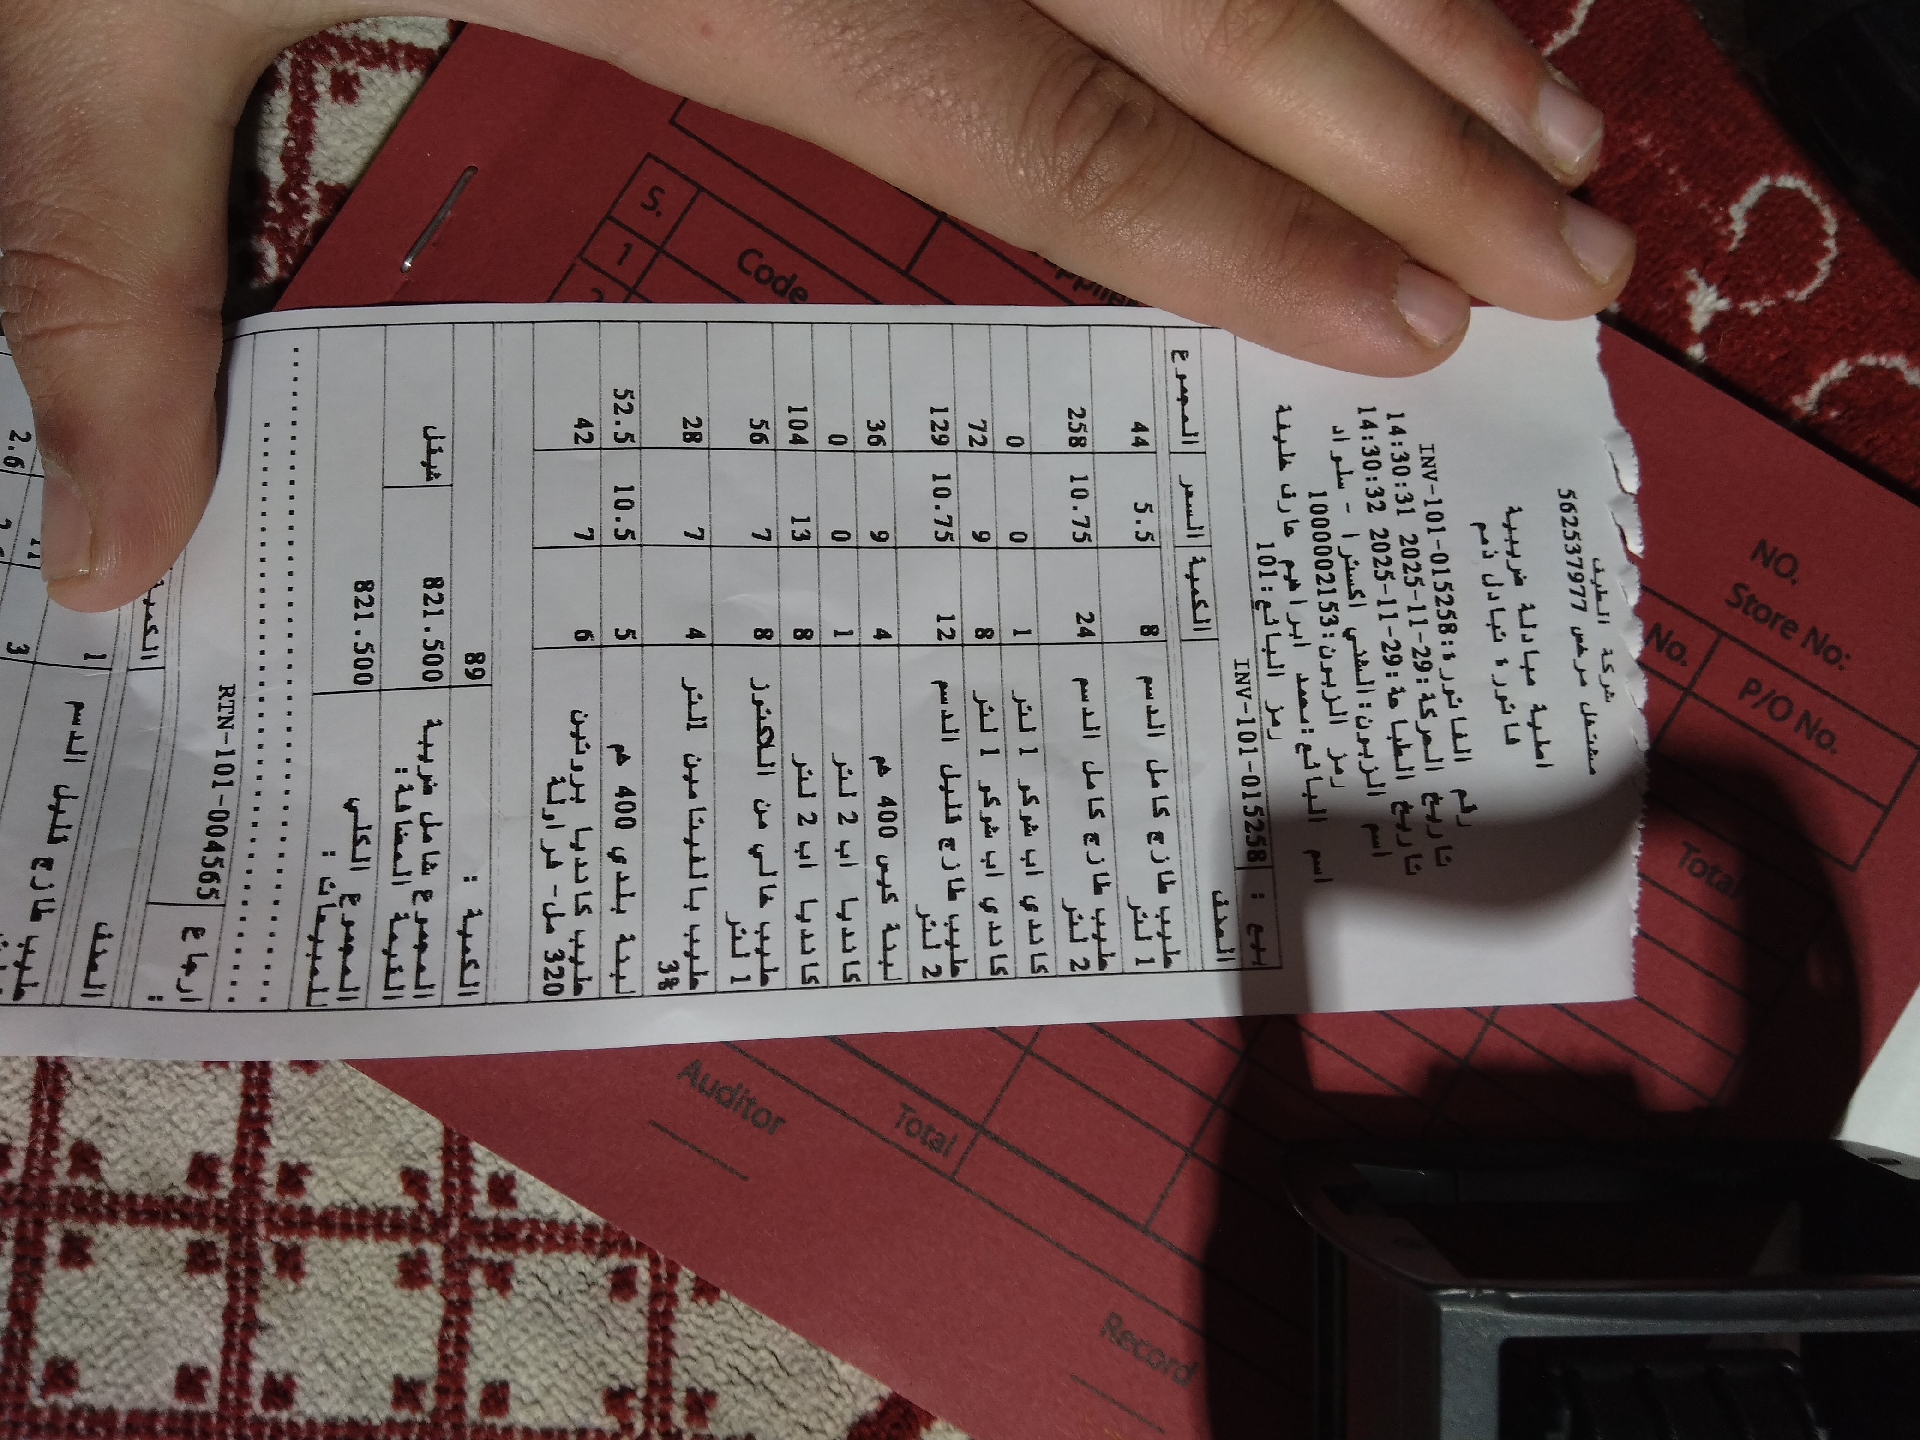 شركة الطيف
مشتغل مرخص 562537977
اصلية مبادلة ضريبية
فاتورة تبادل ذمم
رقم الفاتورة: INV-101-015258
تاريخ الحركة: 2025-11-29 14:30:31
تاريخ الطباعة: 2025-11-29 14:30:32
اسم الزبون: الشني اكسترا - سلواد
رمز الزبون: 1000002153
اسم البائع: محمد ابراهيم عارف خليفة
رمز البائع: 101
بيع : INV-101-015258
الصنف الكمية السعر المجموع
حليب طازج كامل الدسم 1 لتر 8 5.5 44
حليب طازج كامل الدسم 2 لتر 24 10.75 258
كاندي اب شوكو 1 لتر 1 0 0
كاندي اب شوكو 1 لتر 8 9 72
حليب طازج قليل الدسم 2 لتر 12 10.75 129
لبنة كيس 400 غم 4 9 36
كانديا اب 2 لتر 1 0 0
كانديا اب 2 لتر 8 13 104
حليب خالي من اللاكتوز 1 لتر 8 7 56
حليب بالفيتامين 3% التر 4 7 28
لبنة بلدي 400 غم 5 10.5 52.5
حليب كانديا بروتين 320 مل- فراولة 6 7 42
الكمية : 89
المجموع شامل ضريبة القيمة المضافة: 821.500 شيقل
المجموع الكلي للمبيعات : 821.500
ارجاع : RTN-101-004565
الصنف
حليب طازج قليل الدسم 1
3
2.6
NO.
Store No:
P/O No.
No.
Total
S.
Code
1
2
Total
Auditor
Record